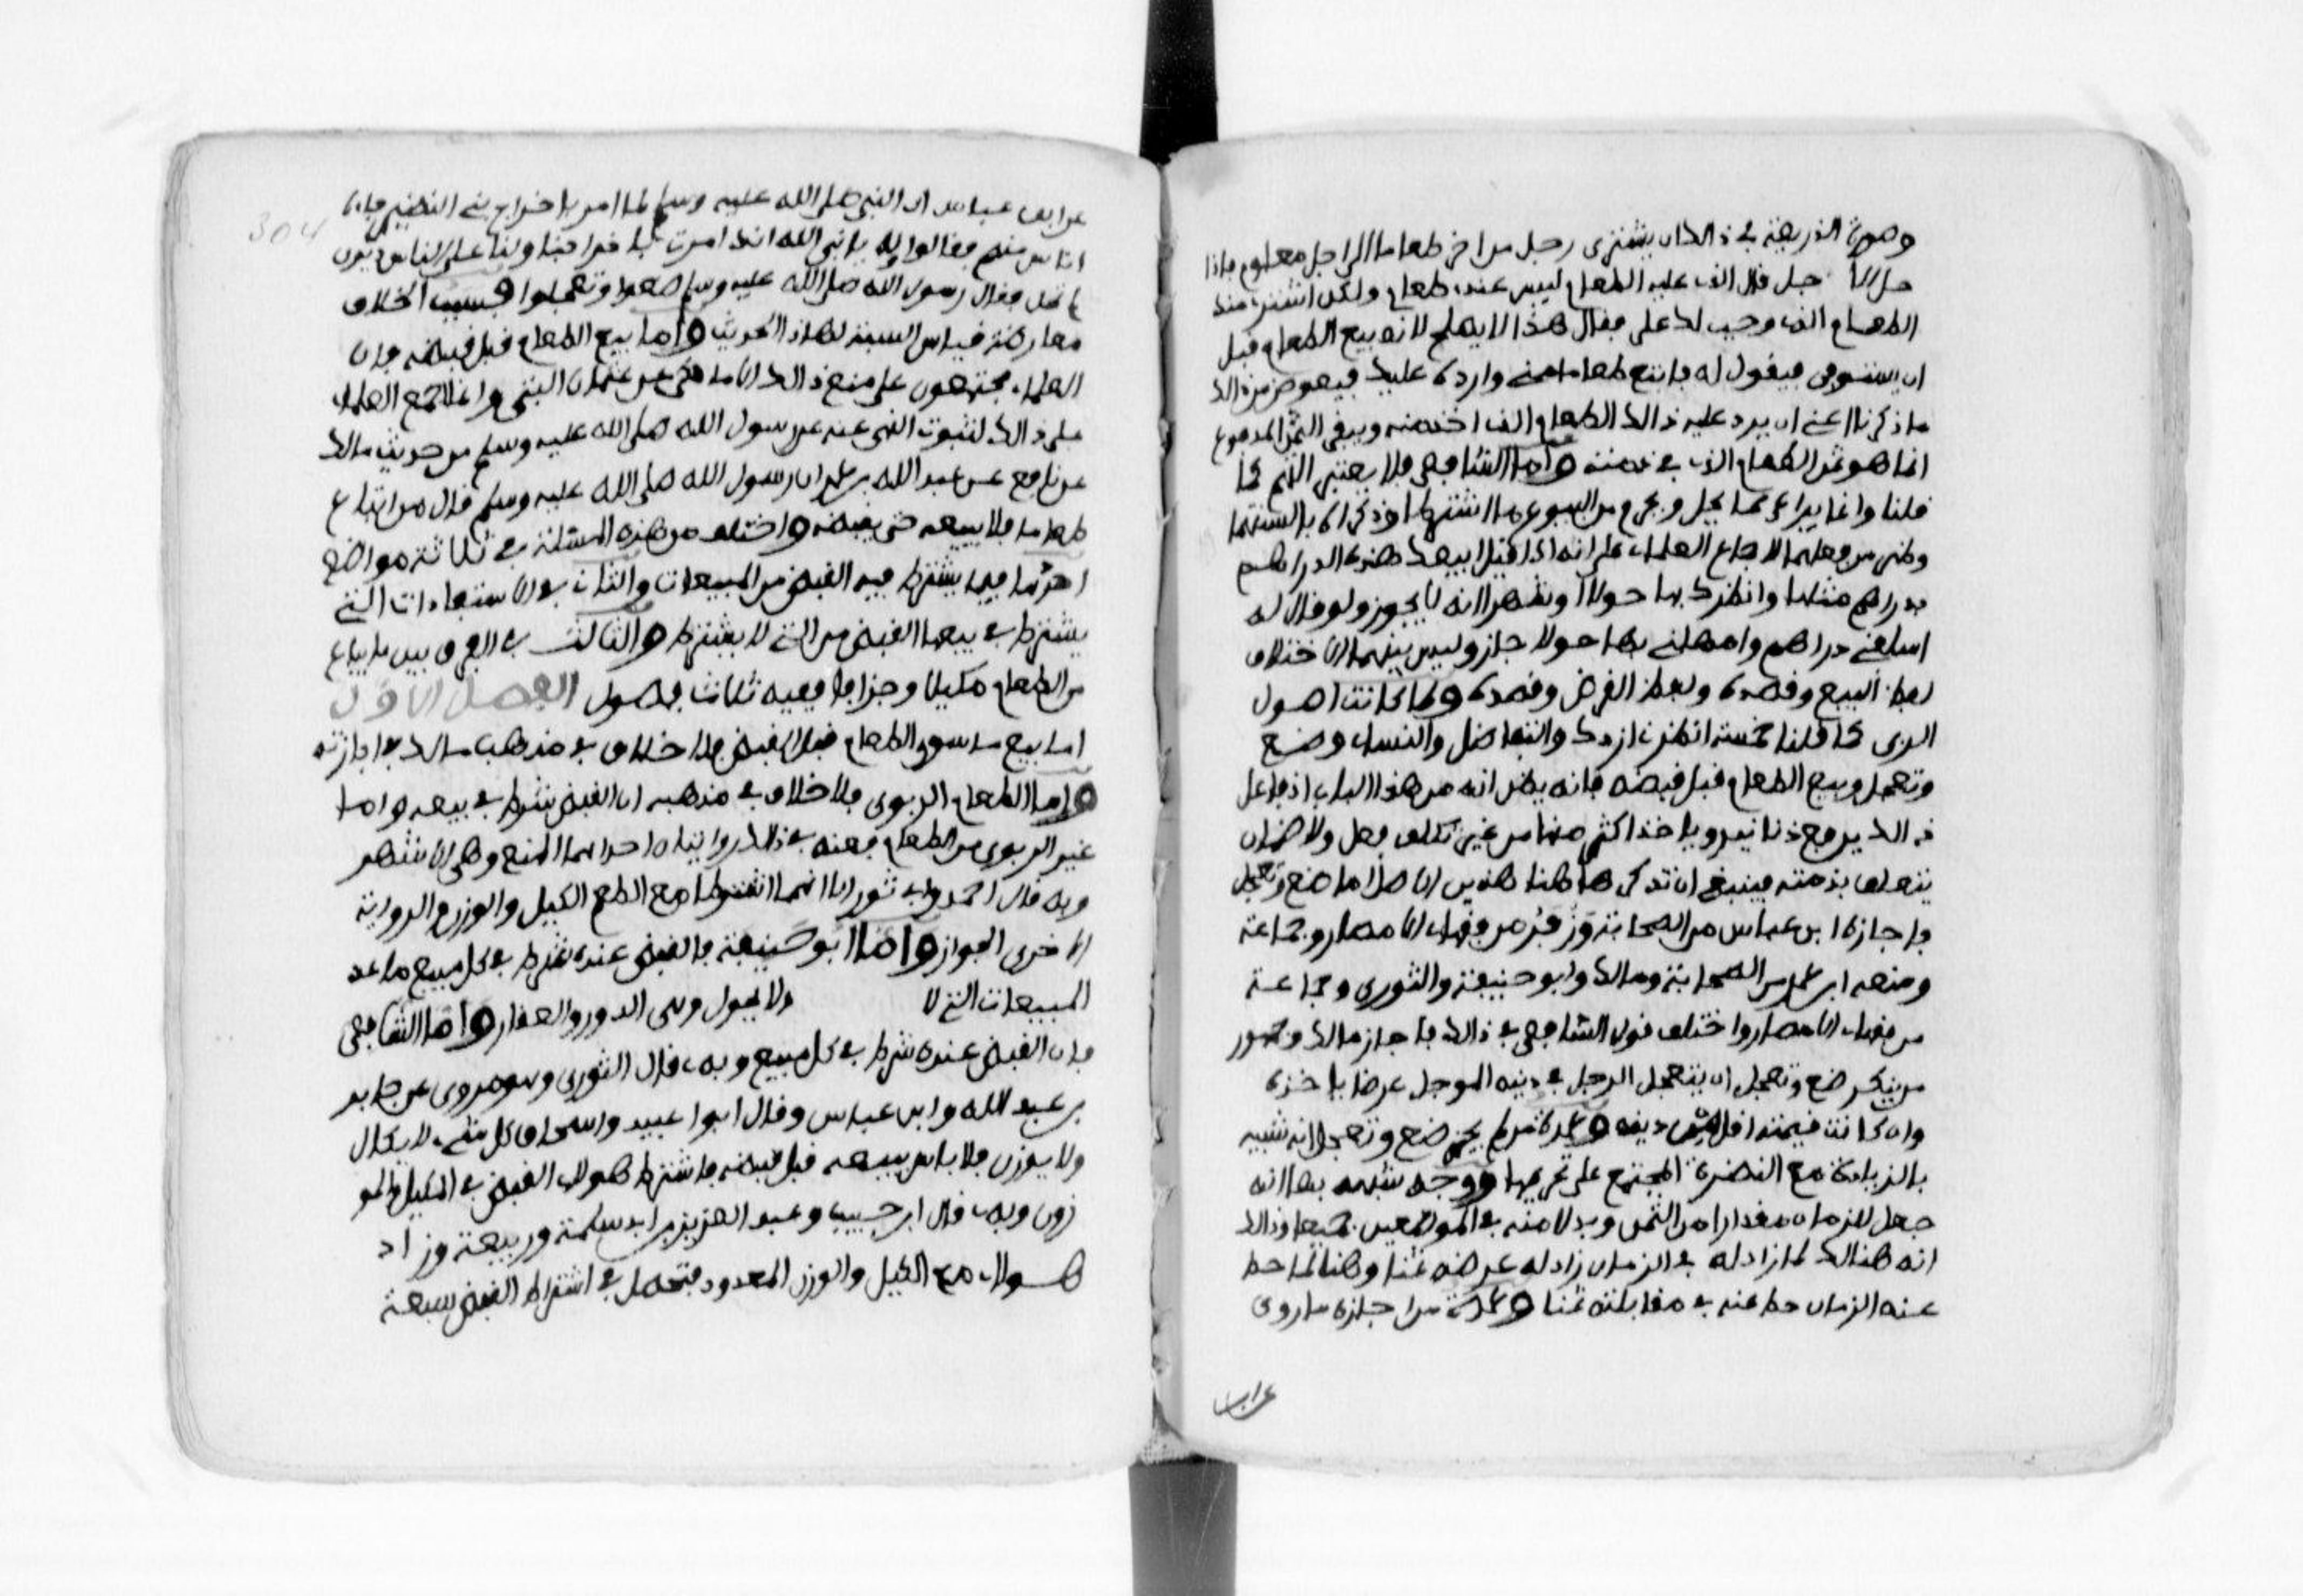 وصورة الذريعة في ذالك ان يشتري رجل من اخر طعاما الى اجل معلوم فاذا
حل الاجل قال الذي عليه الطعام ليس عندي طعام ولكن اشتري منك
الطعام الذي وجب لك علي فقال هذا لا يصلح لانه بيع الطعام قبل
ان يستوفى فيقول له فابتع طعاما مني وارده عليك فيعرض من ذالك
ما ذكرنا اعني ان يرد عليه ذالك الطعام الذي اخذ منه ويبقى الثمن المدفوع
انما هو ثمن الطعام الذي في ذمته واما الشافعي فلا يعتبر التهم كما
قلنا وانما يراعي فيما يحل ويحرم من البيوع ما اشترطا وذكراه بالسنتهما
وظهر من فعلهما لاجماع العلماء على انه اذا قال ابيعك هذه الدراهم
بدراهم مثلها وانظرك بها حولا او شهرا انه لا يجوز ولو قال له
اسلفني دراهم وامهلني بها حولا جاز وليس بينهما الا اختلاف
لفظ البيع وقصده ولفظ القرض وقصده ولما كانت اصول
الربى كما قلنا خمسة انظرني ازدك والتفاضل والنساء وضع
وتعجل وبيع الطعام قبل قبضه فانه يظن انه من هذا الباب اذ فاعل
ذالك يدفع دنانير وياخذ اكثر منها من غير تكلف فعل ولا ضمان
يتعلق بذمته فينبغي ان تذكر هاهنا هذين الاصلين اما ضع وتعجل
فاجازه ابن عباس من الصحابة وزفر من فقهاء الامصار وجماعة
ومنعه ابن عمر من الصحابة ومالك وابو حنيفة والثوري وجماعة
من فقهاء الامصار واختلف قول الشافعي في ذالك فاجاز مالك وجمهور
من ينكر ضع وتعجل ان يتعجل الرجل في دينه الموجل عرضا ياخذه
وان كانت قيمته اقل من دينه وعمدة من لم يجز ضع وتعجل انه شبيه
بالزيادة مع النضرة المجتمع على تحريمها ووجه شبهه بها انه
جعل للزمان مقدارا من الثمن وبدلا منه في الموضعين جميعا وذالك
انه هنالك لما زاد له في الزمان زاد له عرضه ثمنا وهنا لما حط
عنه الزمان حط عنه في مقابلته ثمنا وعمدة من اجازه ما روي
عن ابن
عن ابن عباس ان النبي صلى الله عليه وسلم لما امر باخراج بني النضير جاءه
اناس منهم فقالوا له يا نبي الله انك امرت باخراجنا ولنا على الناس ديون
لم تحل فقال رسول الله صلى الله عليه وسلم ضعوا وتعجلوا فسبب الخلاف
معارضة قياس السبه لهاذا الحديث واما بيع الطعام قبل قبضه فان
العلماء مجتمعون على منع ذالك الا ما حكي عن عثمان البتي وانما اجمع العلماء
على ذالك لثبوت النهي عنه عن رسول الله صلى الله عليه وسلم من حديث مالك
عن نافع عن عبد الله بن عمر ان رسول الله صلى الله عليه وسلم قال من ابتاع
طعاما فلا يبيعه حتى يقبضه واختلف من هذه المسئلة في ثلاثة مواضع
احدها فيما يشترط فيه القبض من المبيعات والثاني في الاستفادات التي
يشترط في بيعها القبض من التي لا يشترط والثالث في الفرق بين ما يباع
من الطعام مكيلا وجزافا ففيه ثلاث فصول الفصل الاول
اما بيع ما سوى الطعام قبل القبض فلا خلاف في مذهب مالك في اجازته
واما الطعام الربوي فلا خلاف في مذهبه ان القبض شرط في بيعه واما
غير الربوي من الطعام فعنه في ذالك روايتان احداهما المنع وهي الاشهر
وبه قال احمد وابو ثور الا انهما اشترطا مع الطعم الكيل والوزن والرواية
الاخرى الجواز واما ابو حنيفة فالقبض عنده شرط في كل مبيع ما عدا
المبيعات التي لا ولا يحول وهي الدور والعقار واما الشافعي
فان القبض عنده شرط في كل مبيع وبه قال الثوري وهو مروي عن جابر
بن عبد الله وابن عباس وقال ابوا عبيد واسحاق كل شيء لا يكال
ولا يوزن فلا باس ببيعه قبل قبضه فاشترط هولاء القبض في المكيل والمو
زون وبه قال ابن حبيب وعبد العزيز بن ابي سلمة وربيعة وزاد
هولاء مع الكيل والوزن المعدود فتحصل في اشتراط القبض سبعة
304